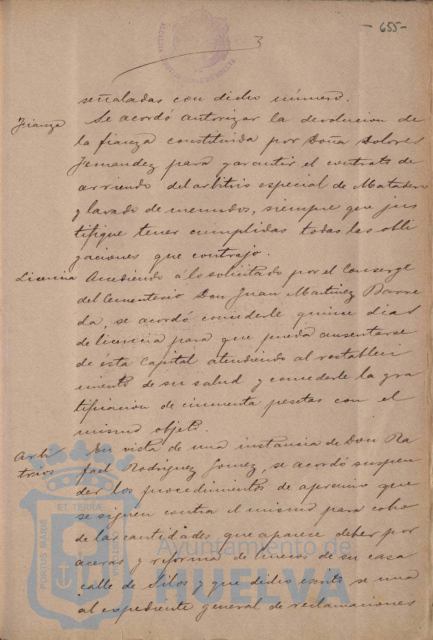 - 655 -
3
señaladas con dicho número.
Fianza Se acordó autorizar la devolucion de
la fianza constituida por Doña Dolores
Fernandez para garantir el contrato de
arriendo del arbitrio especial de Matadero
y lavado de menudos, siempre que jus
tifique tener cumplidas todas las obli
gaciones que contrajo.
Licencia Accediendo á lo solicitado por el Conserge
del Cementerio Don Juan Martinez Barre
da, se acordó concederle quince dias
de licencia para que pueda ausentarse
de esta Capital atendiendo al restableci
miento de su salud y concederle la gra
tificacion de cincuenta pesetas con el
mismo objeto.
Arbi En vista de una instancia de Don Ra
trios fael Rodriguez Gomez, se acordó suspen
der los procedimientos de apremio que
se siguen contra el mismo para cobro
de las cantidades que aparece deber por
aceras y reforma de huecos de su casa
calle de Silos y que dicho escrito se una
al expediente general de reclamaciones
PORTUS MARIS
ET TERRÆ
CUSTODIA
Ayuntamiento de
HUELVA